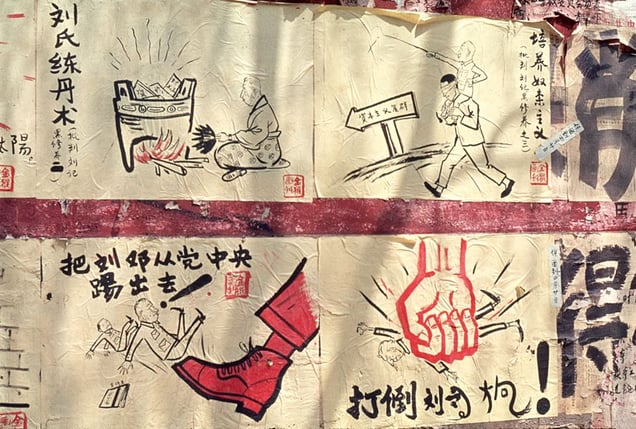 刘氏练丹术
(批判刘记
黑修养二)
培养奴隶主义
(批判刘记黑修养之三)
资本主义
陽。
把刘邓从党中央
踢出去!
打倒刘狗!
得